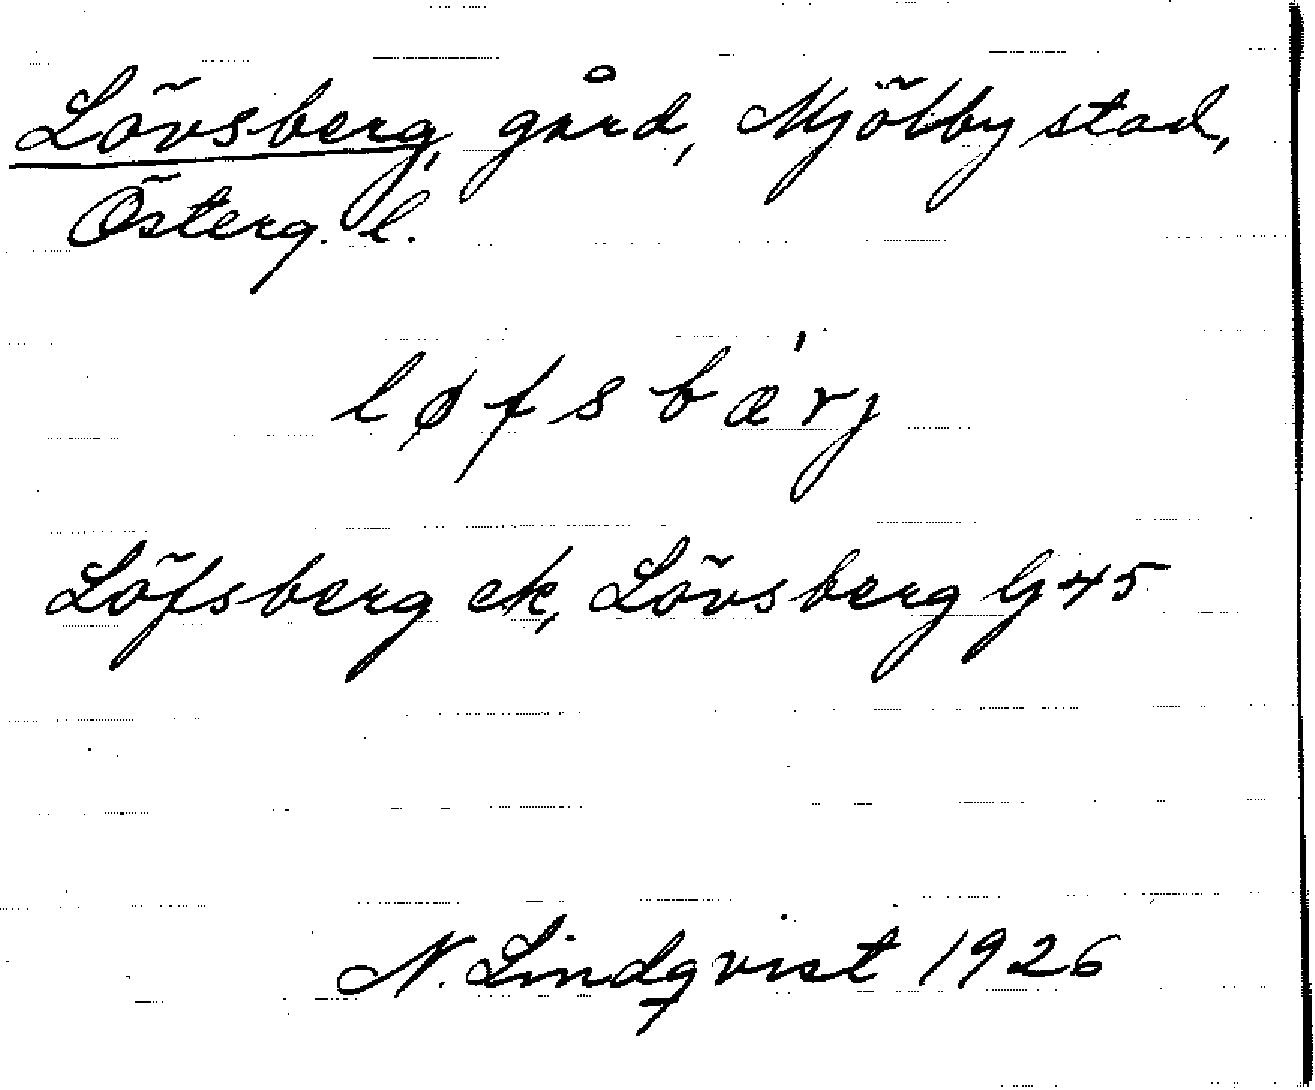 Lövsberg, gård, Mjölby stad,
Österg. l.
løfsbæ'rj
Löfsberg ek, Lövsberg G 45
N. Lindqvist 1926